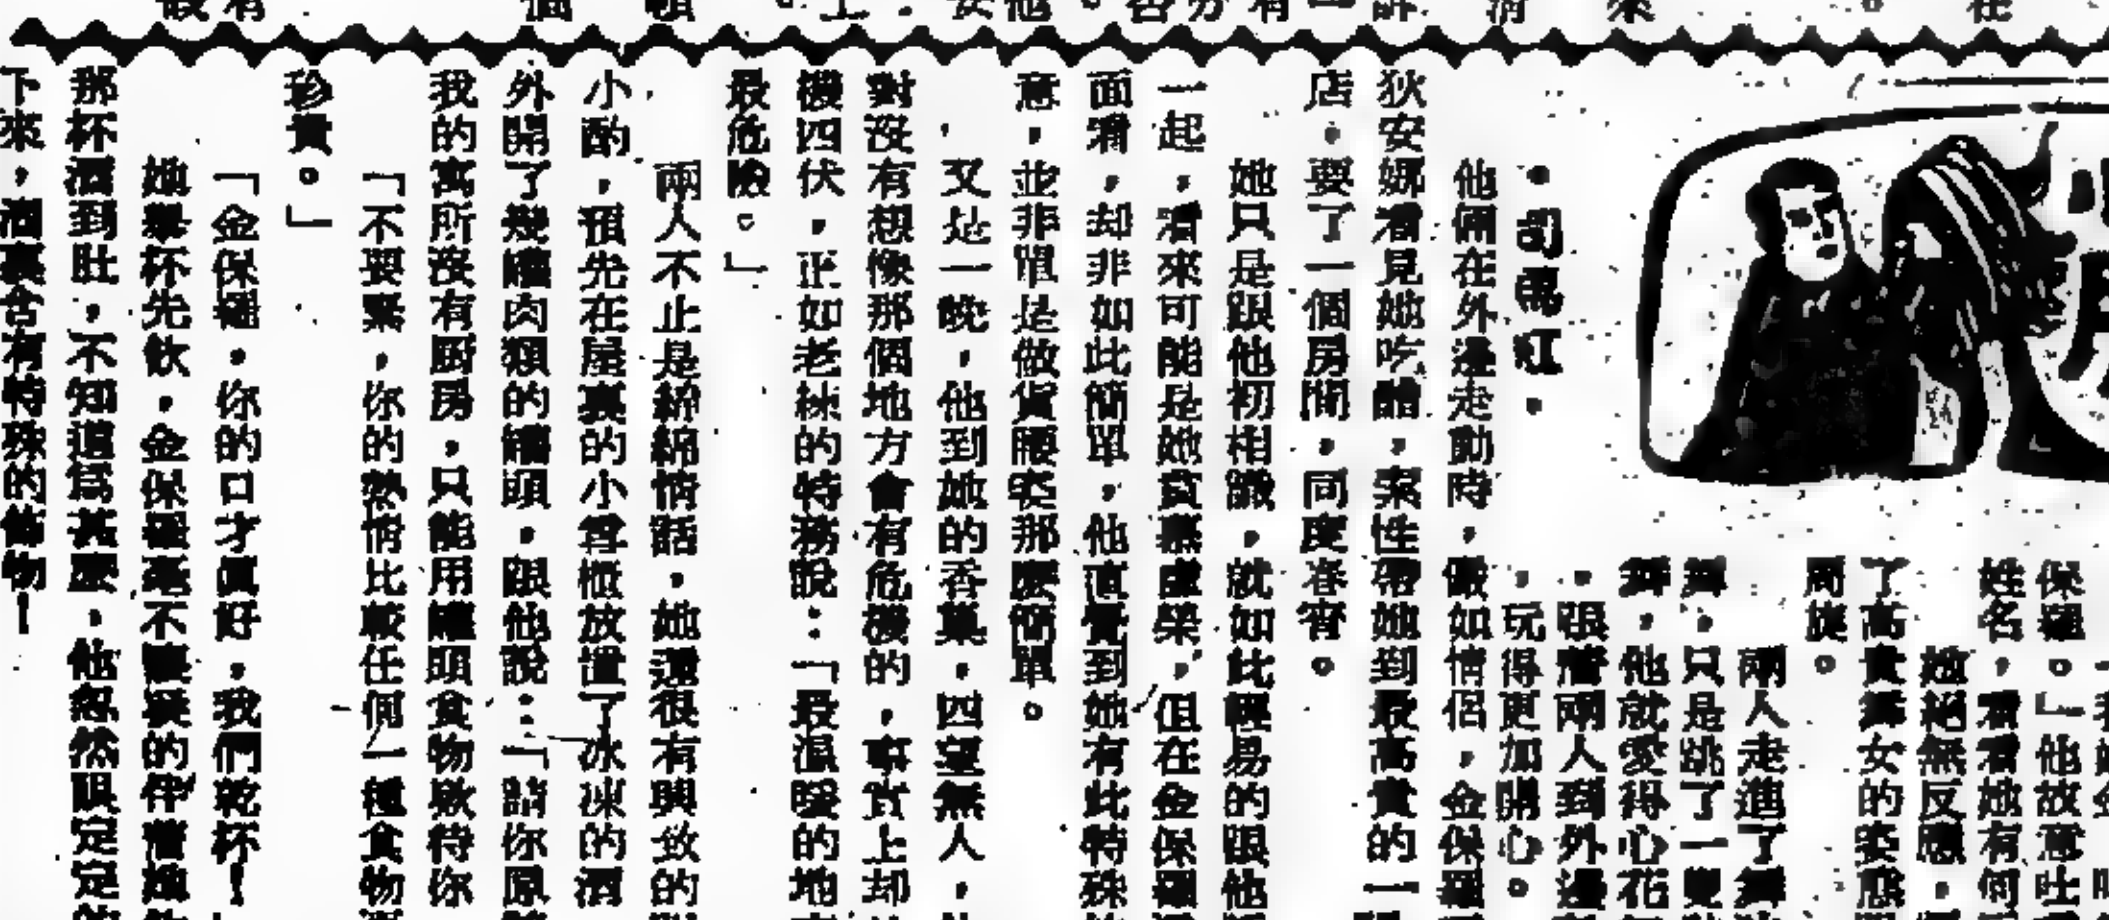 保羅。」他故意吐
姓名，看看她有何
她絕無反應，
了高貴舞女的姿態
周旋。
兩人走進了舞
舞，只是跳了一
舞，他就愛得心花
兩人到外邊
，玩得更加開心。
•司馬紅•
他倆在外邊走動時，儼如情侶，金保羅
狄安娜看見她吃醋，索性帶她到最高貴的一
店，要了一個房間，同度春宵。
她只是跟他初相識，就如此輕易的跟他
一起，看來可能是她貪慕虛榮，但在金保羅
面看，却非如此簡單，他直覺到她有此特殊
意，並非單是做貨腰姿那麼簡單。
又是一晚，他到她的香巢，四望無人，
對沒有想像那個地方會有危機的，事實上却
機四伏，正如老練的特務說：「最溫暖的地
最危險。」
兩人不止是綿綿情話，她還很有興致的
小酌，預先在屋裏的小雪櫃放置了冰凍的酒
外開了幾罐肉類的罐頭，跟他說：「請你原
我的寓所沒有厨房，只能用罐頭食物欵待你
「不要緊，你的熱情比較任何一種食物
珍貴。」
「金保羅，你的口才眞好，我們乾杯！」
她舉杯先飲，金保羅毫不猶疑的伴着她
那杯酒到肚，不知道爲甚麼，他忽然眼定定的
下來，酒裏含有特殊的餙物！